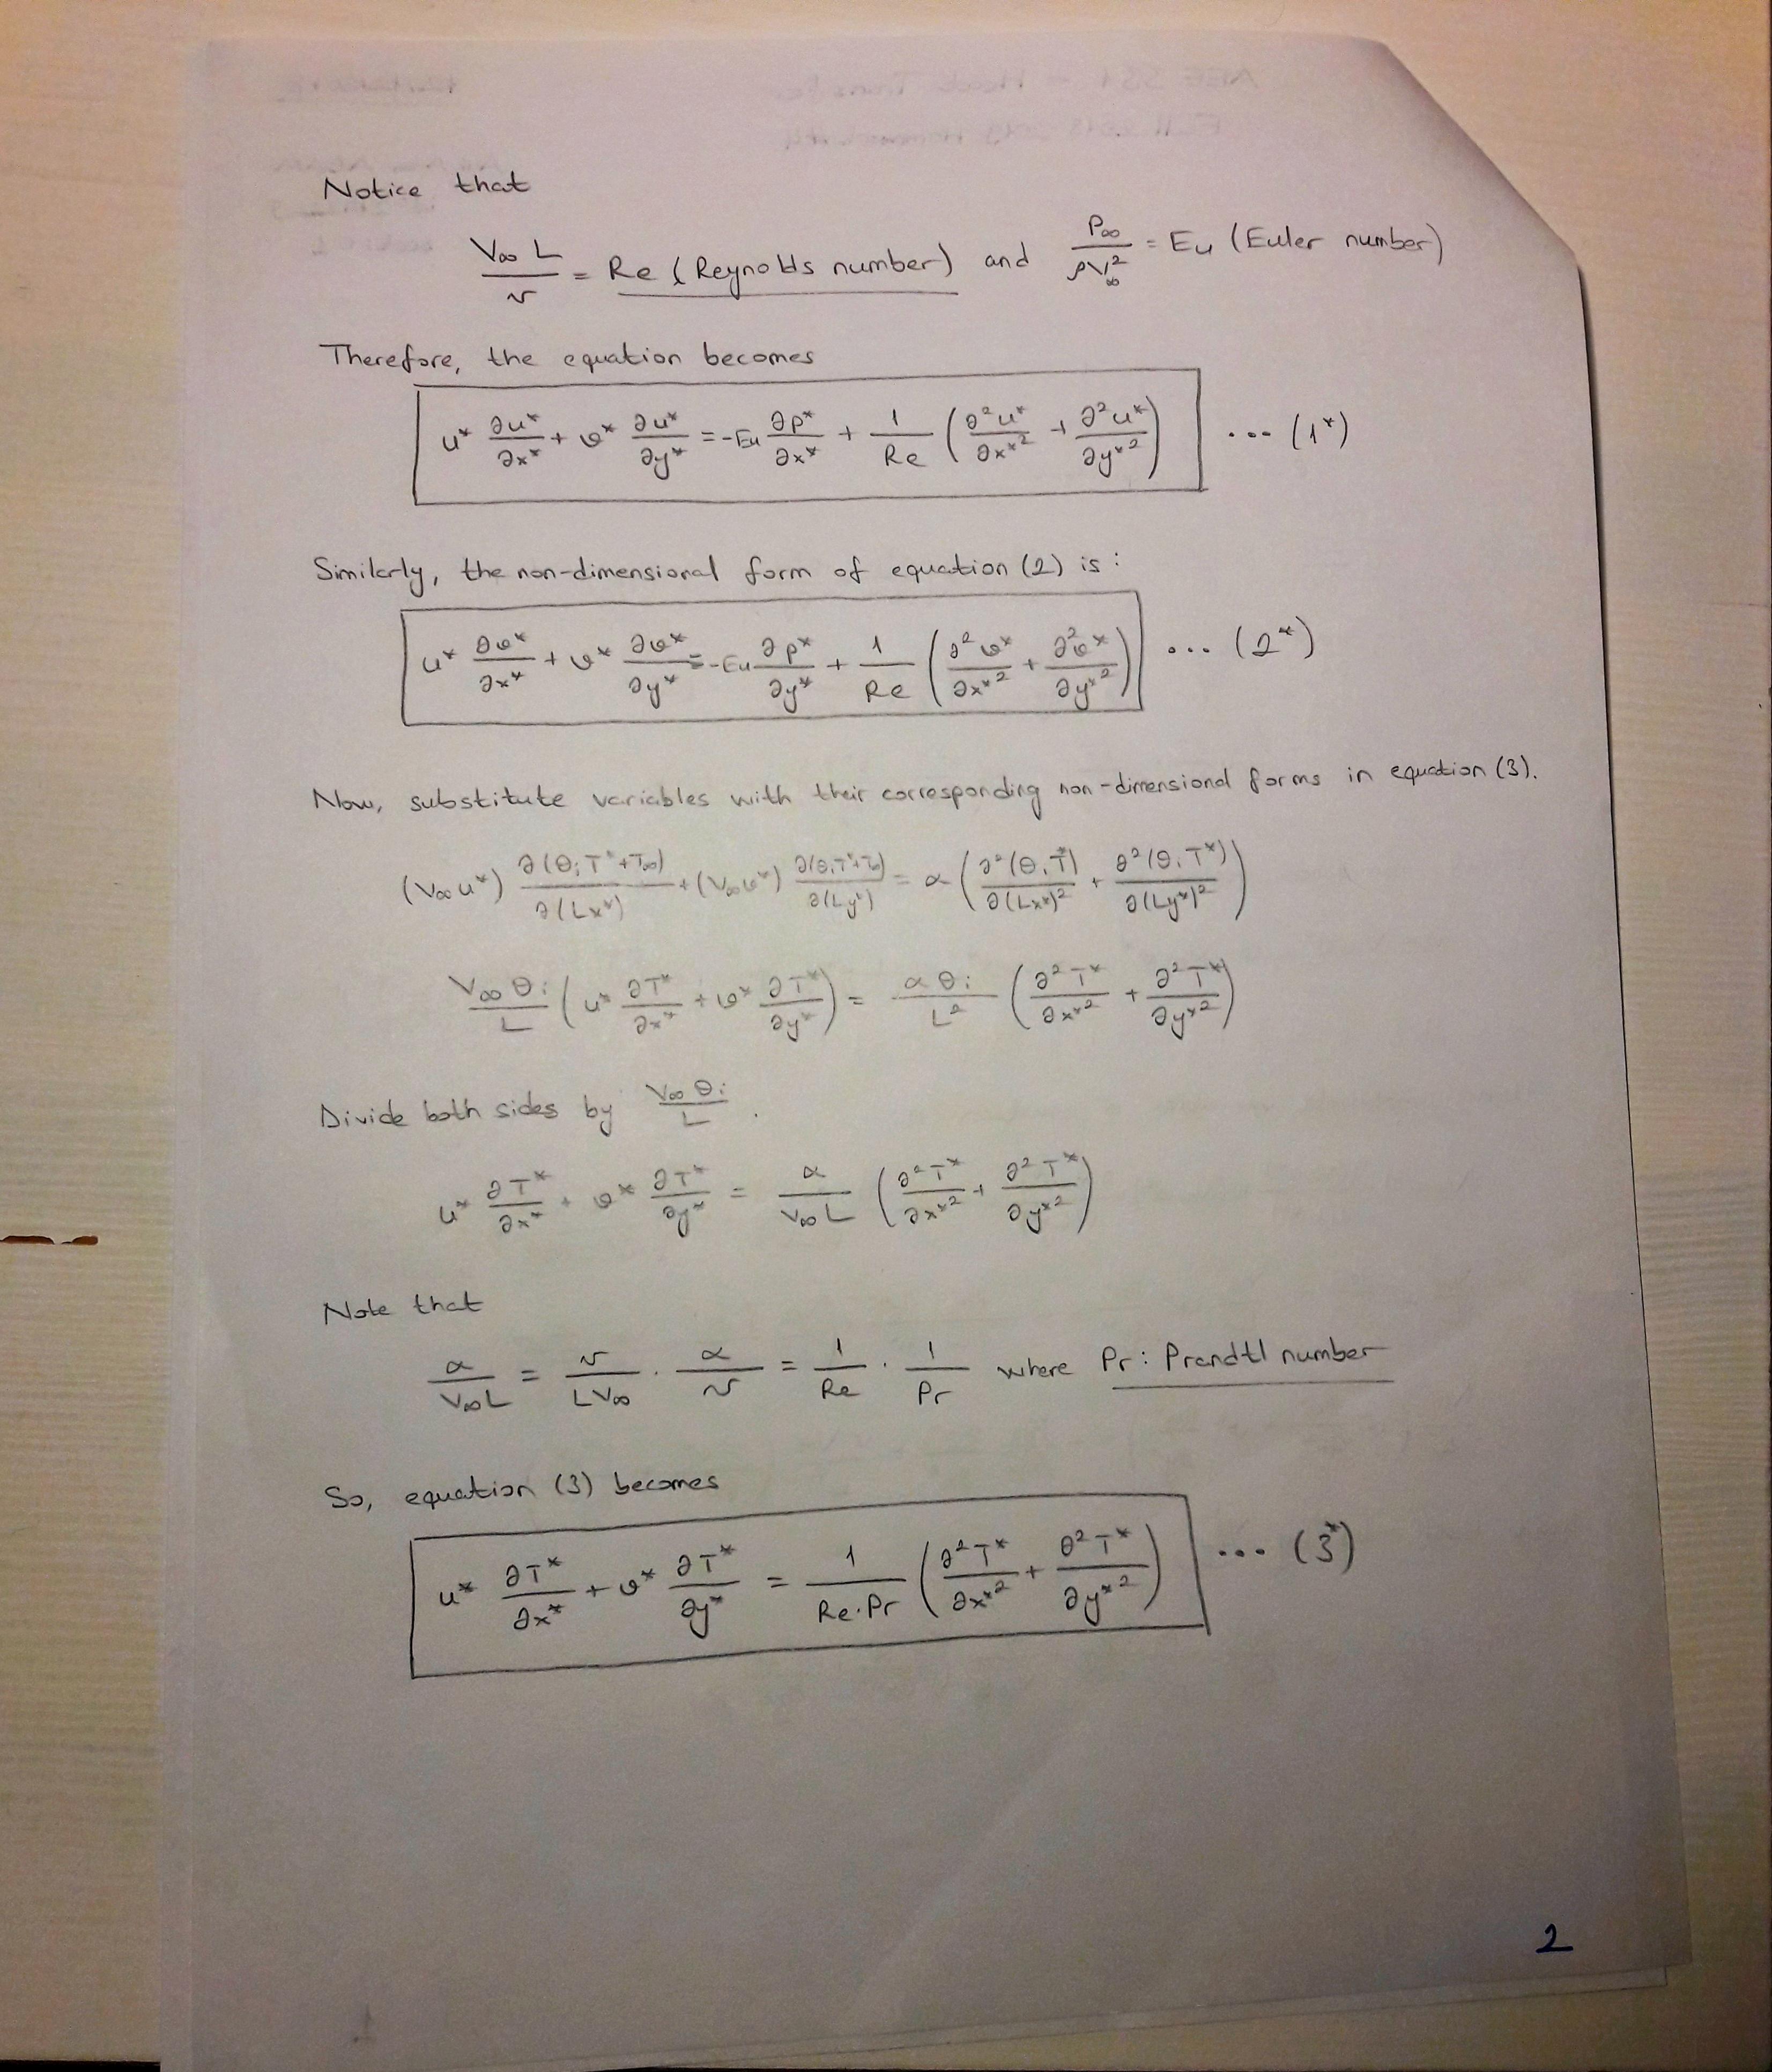 Notice that
V∞ L / ν = Re (Reynolds number) and P∞ / ρV∞² = Eu (Euler number)
Therefore, the equation becomes
u* ∂u*/∂x* + v* ∂u*/∂y* = -Eu ∂p*/∂x* + 1/Re (∂²u*/∂x*² + ∂²u*/∂y*²) ... (1*)
Similarly, the non-dimensional form of equation (2) is:
u* ∂v*/∂x* + v* ∂v*/∂y* = -Eu ∂p*/∂y* + 1/Re (∂²v*/∂x*² + ∂²v*/∂y*²) ... (2*)
Now, substitute variables with their corresponding non-dimensional forms in equation (3).
(V∞u*) ∂(θiT*+T∞)/∂(Lx*) + (V∞v*) ∂(θiT*+T∞)/∂(Ly*) = α (∂²(θiT*)/∂(Lx*)² + ∂²(θiT*)/∂(Ly*)²)
V∞θi/L (u* ∂T*/∂x* + v* ∂T*/∂y*) = αθi/L² (∂²T*/∂x*² + ∂²T*/∂y*²)
Divide both sides by V∞θi/L .
u* ∂T*/∂x* + v* ∂T*/∂y* = α/V∞L (∂²T*/∂x*² + ∂²T*/∂y*²)
Note that
α/V∞L = ν/LV∞ . α/ν = 1/Re . 1/Pr where Pr: Prandtl number
So, equation (3) becomes
u* ∂T*/∂x* + v* ∂T*/∂y* = 1/Re.Pr (∂²T*/∂x*² + ∂²T*/∂y*²) ... (3*)
2